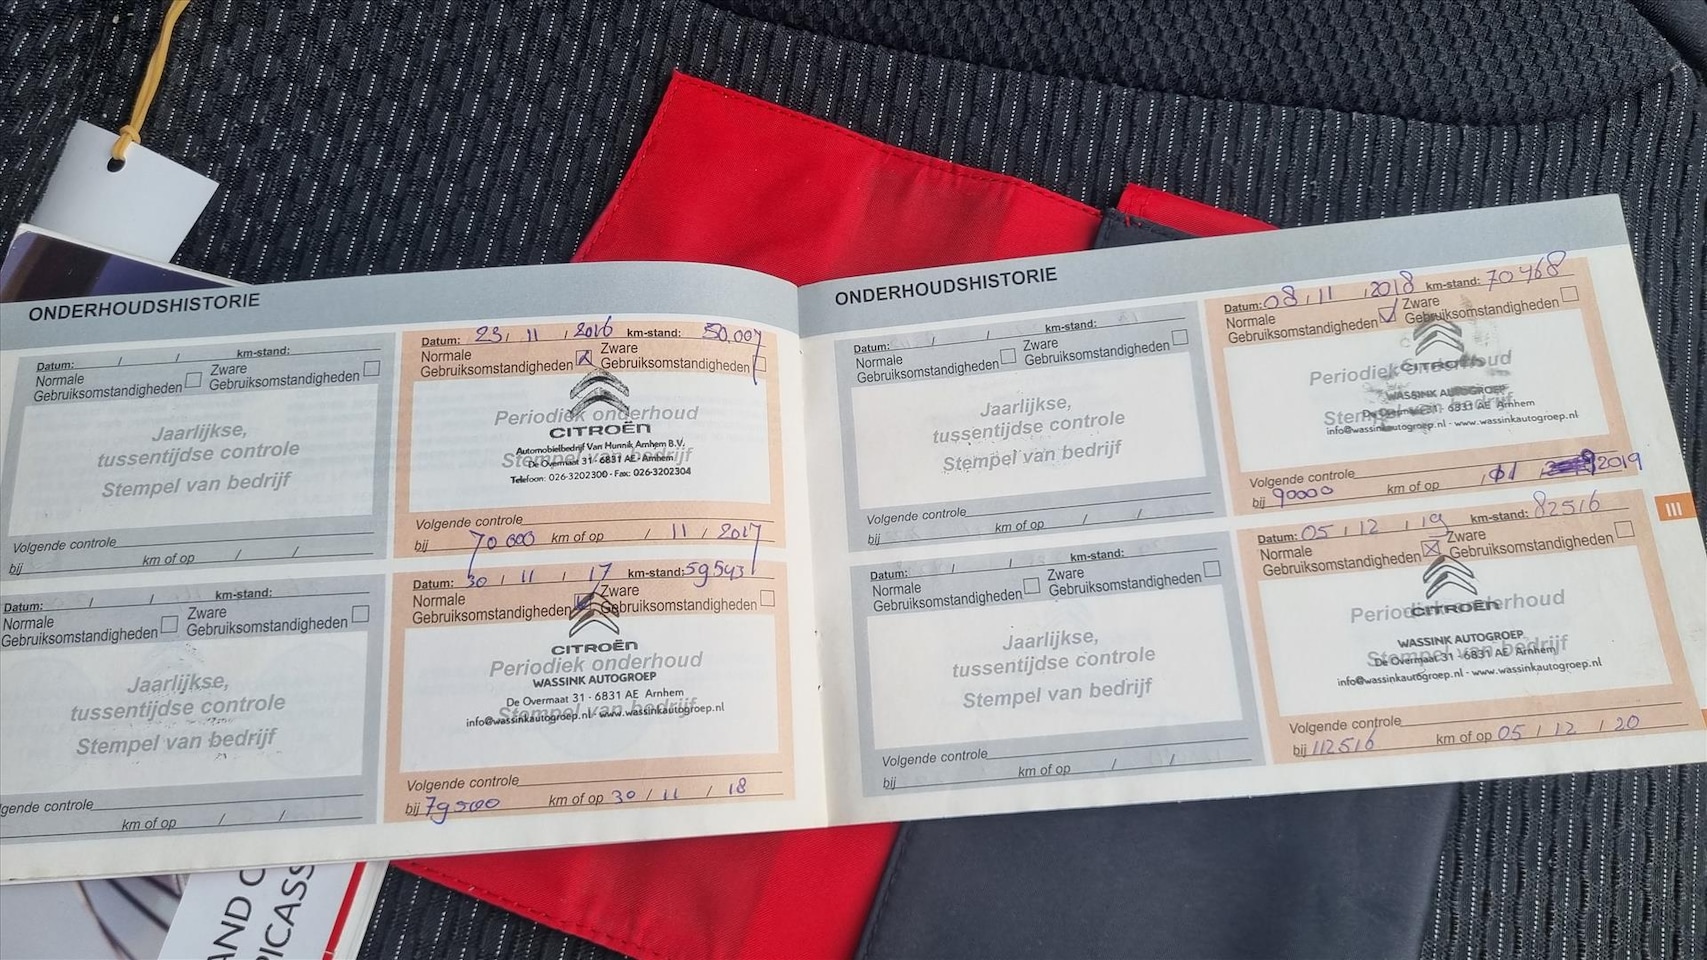 ONDERHOUDSHISTORIE
Datum: / / km-stand:
Normale Gebruiksomstandigheden
Zware Gebruiksomstandigheden
Jaarlijkse,
tussentijdse controle
Stempel van bedrijf
Volgende controle
bij km of op / /
Datum: 23 / 11 / 2016 km-stand: 50.007
Normale Gebruiksomstandigheden
Zware Gebruiksomstandigheden
Periodiek onderhoud
CITROËN
Automobielbedrijf Van Hunnik Arnhem B.V.
Stempel van bedrijf
De Overmaat 31 - 6831 AE - Arnhem
Telefoon: 026-3202300 - Fax: 026-3202304
Volgende controle
bij 70 000 km of op / 11 / 2017
Datum: / / km-stand:
Normale Gebruiksomstandigheden
Zware Gebruiksomstandigheden
Jaarlijkse,
tussentijdse controle
Stempel van bedrijf
lgende controle
km of op / /
Datum: 30 / 11 / 17 km-stand: 59543
Normale Gebruiksomstandigheden
Zware Gebruiksomstandigheden
CITROËN
Periodiek onderhoud
WASSINK AUTOGROEP
De Overmaat 31 - 6831 AE Arnhem
Stempel van bedrijf
info@wassinkautogroep.nl - www.wassinkautogroep.nl
Volgende controle
bij 79500 km of op 30 / 11 / 18
ONDERHOUDSHISTORIE
Datum: / / km-stand:
Normale Gebruiksomstandigheden
Zware Gebruiksomstandigheden
Jaarlijkse,
tussentijdse controle
Stempel van bedrijf
Volgende controle
bij km of op / /
Datum: 08 / 11 / 2018 km-stand: 70468
Normale Gebruiksomstandigheden
Zware Gebruiksomstandigheden
Periodiek onderhoud
CITROËN
WASSINK AUTOGROEP
Stempel van bedrijf
De Overmaat 31 - 6831 AE Arnhem
info@wassinkautogroep.nl - www.wassinkautogroep.nl
Volgende controle
bij 90000 km of op / 2019
Datum: / / km-stand:
Normale Gebruiksomstandigheden
Zware Gebruiksomstandigheden
Jaarlijkse,
tussentijdse controle
Stempel van bedrijf
Volgende controle
bij km of op / /
Datum: 05 / 12 / 19 km-stand: 82516
Normale Gebruiksomstandigheden
Zware Gebruiksomstandigheden
Periodiek onderhoud
CITROËN
WASSINK AUTOGROEP
Stempel van bedrijf
De Overmaat 31 - 6831 AE Arnhem
info@wassinkautogroep.nl - www.wassinkautogroep.nl
Volgende controle
bij 112516 km of op 05 / 12 / 20
III
AND C
PICASS